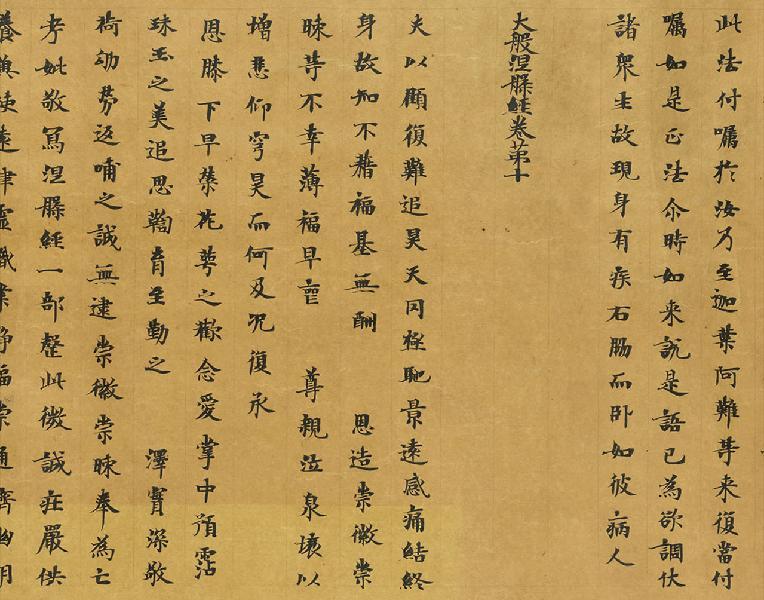 此法付囑於汝乃至迦葉阿難等来復當付
囑如是正法尒時如来說是語已為欲調伏
諸衆生故現身有疾右脇而卧如彼病人
大般涅槃經卷第十
夫以顧復難追昊天罔極馳景遠感痛結終
身故知不藉福基無酬 恩造崇徽崇
暕等不幸薄福早 尊親泣泉壤以
增悲仰穹昊而何及况復承
恩膝下早榮花萼之歡念愛掌中預霑
珠玉之美追思鞠育至勤之 澤實深敬
荷劬勞返哺之誠無逮崇徽崇暕奉為亡
考妣敬寫涅槃經一部罄此微誠庄嚴供
養